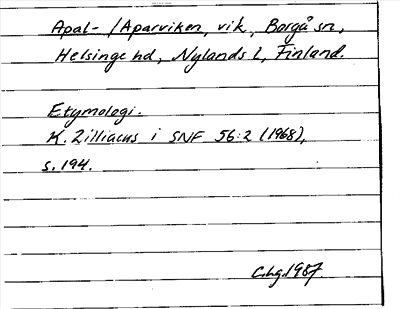 Apal- / Aparviken, vik, Borgå sn,
Helsinge hd, Nylands l, Finland.
Etymologi.
K. Zilliacus i SNF 56:2 (1968),
s. 194.
C.hg. 1987.